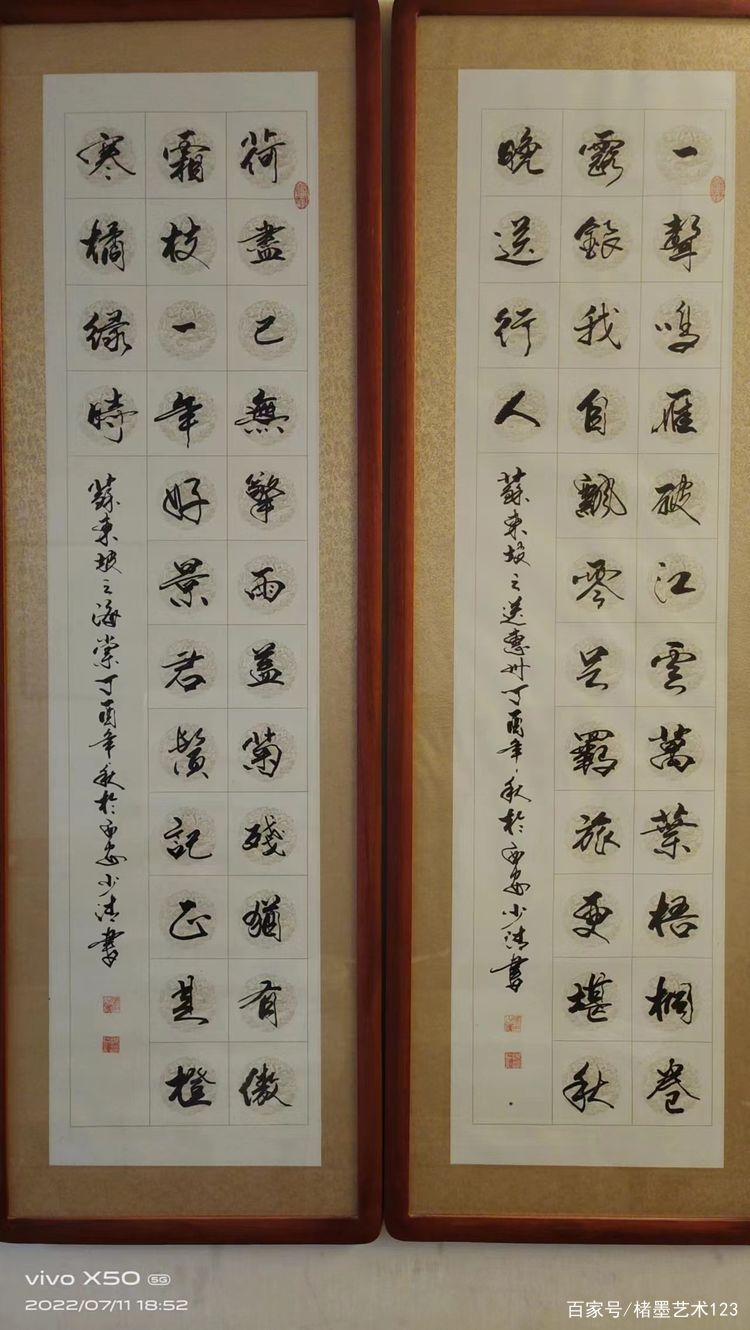 一聲鳴雁破江雲萬葉梧桐卷
露銀我自飄零足羈旅更堪秋
晚送行人
蘇東坡之送惠州丁酉年秋於西安少清書
荷盡已無擎雨蓋菊殘猶有傲
霜枝一年好景君鬚記正是橙
寒橘綠時
蘇東坡之海棠丁酉年秋於西安少清書
vivo X50 5G
2022/07/11 18:52
百家号/楮墨艺术123